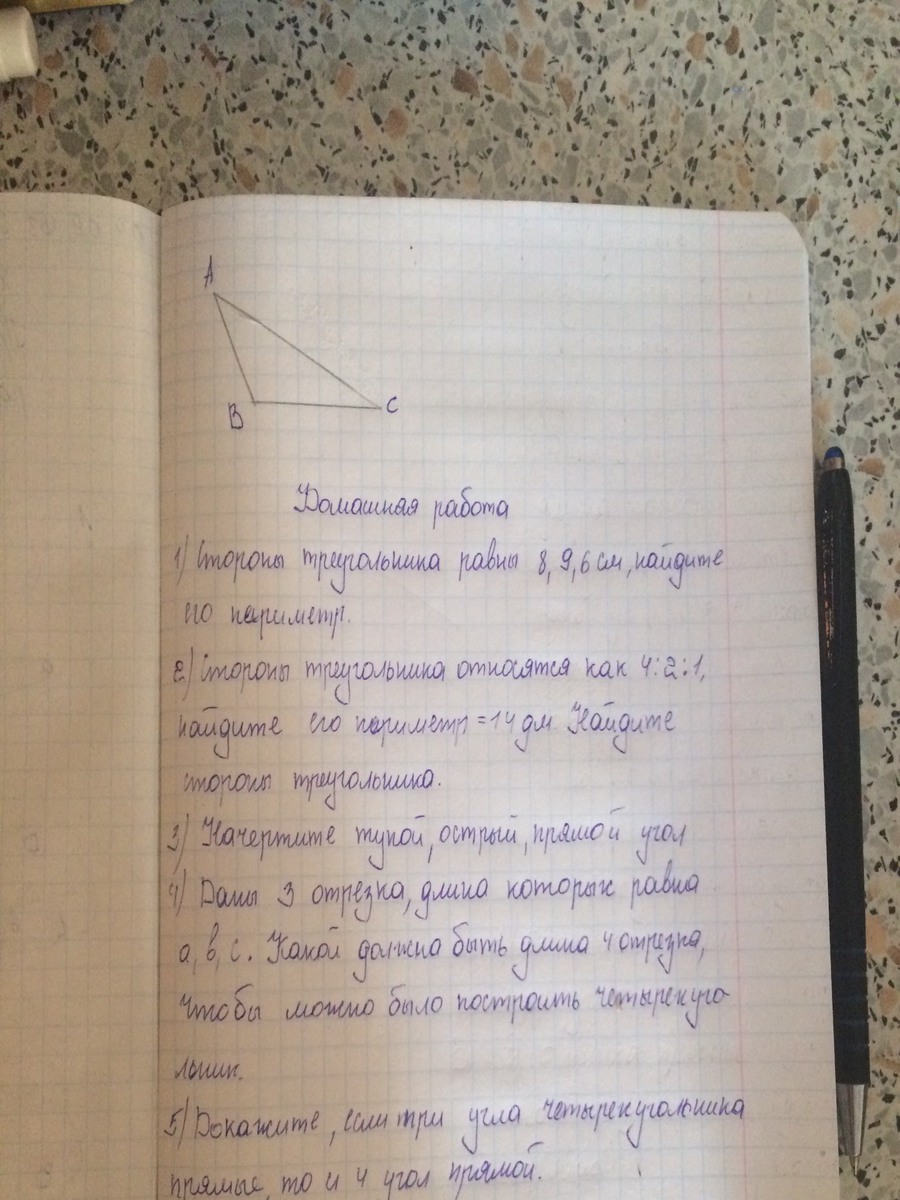 A
B
C
Домашняя работа
1) Стороны треугольника равны 8, 9, 6 см, найдите
его периметр.
2) Стороны треугольника относятся как 4:2:1,
найдите его периметр = 14 дм Найдите
стороны треугольника.
3) Начертите тупой, острый, прямой угол
4) Даны 3 отрезка, длина которых равна
а, в, с. Какой должна быть длина 4 отрезка,
чтобы можно было построить четырехуго-
льник.
5) Докажите, если три угла четырехугольника
прямые, то и 4 угол прямой.